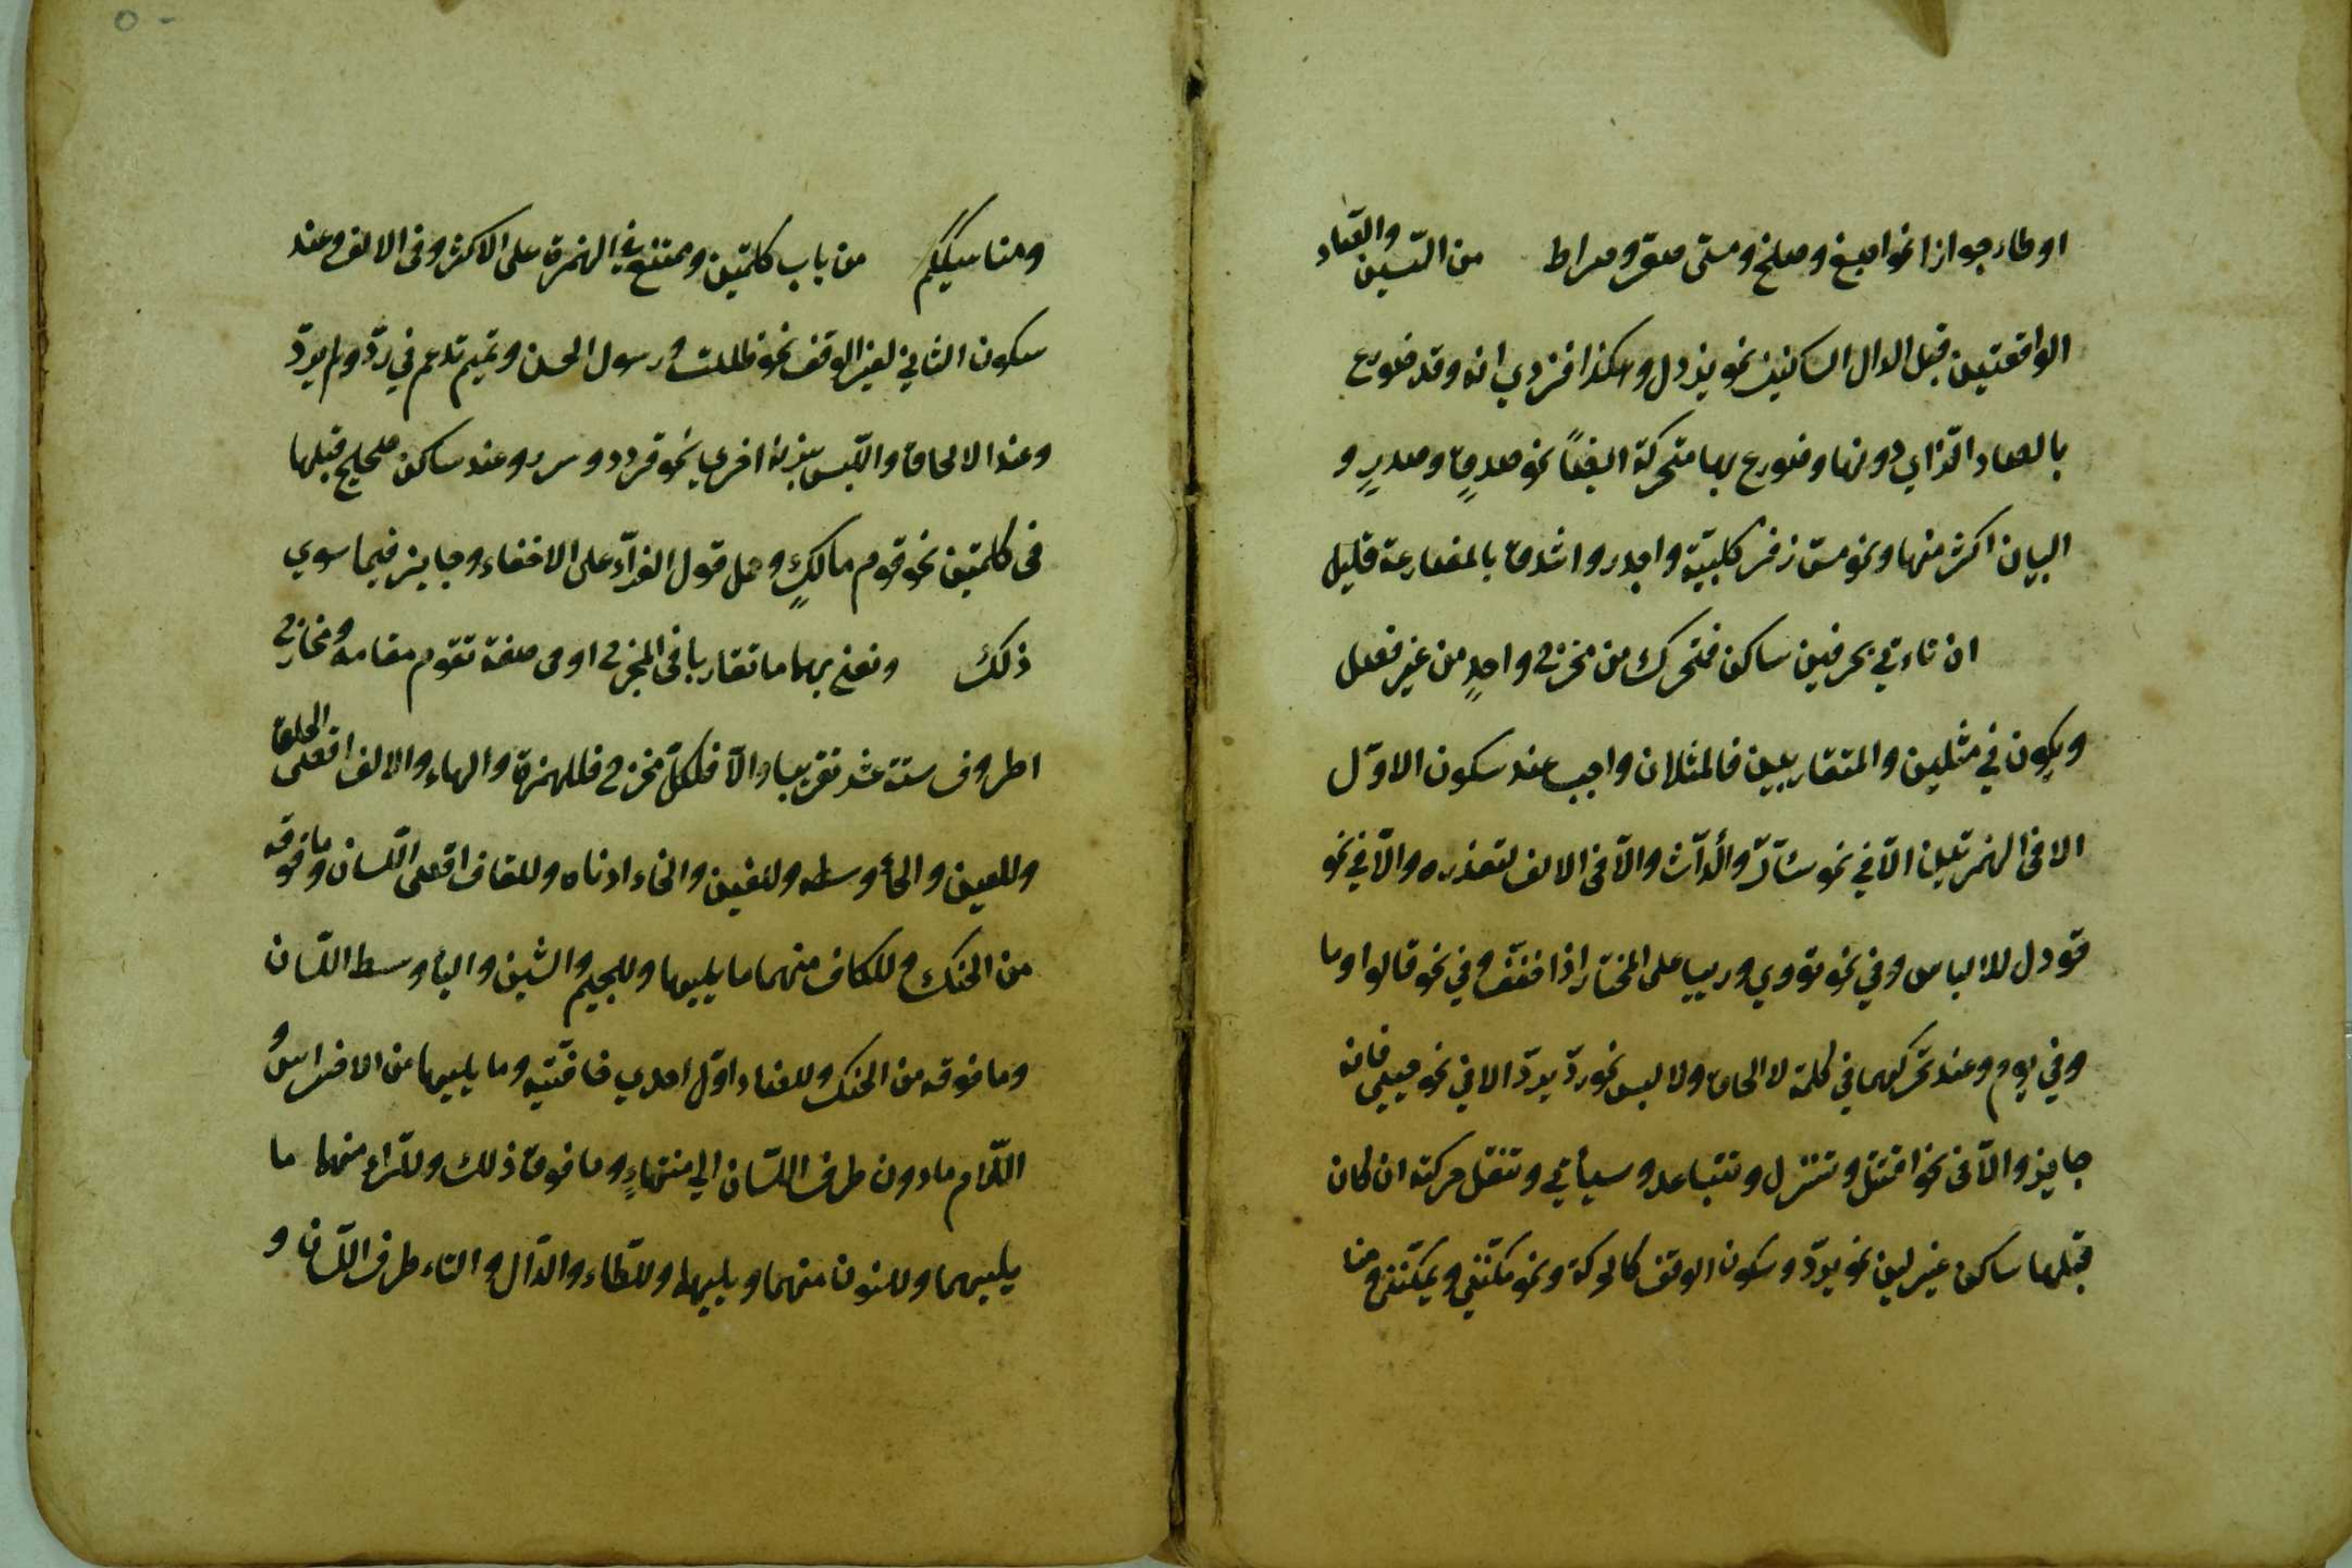 او طاء جوازا نحو اصبغ وصلخ ومسّ صقر وصراط من السّين والصّاد
الواقعتين قبل الدال الساكنين نحو يزدل وهكذا فزدي انه وقد ضورع
بالصاد الزّاي دونها وضورع بها متحركة ايضاً نحو صدقٍ وصدرٍ و
البيان اكثر منها ونحو مسّ زقر كلبيّة واجدر واشدق بالمضارعة قليل
ان تاءتي بحرفين ساكن فمتحرك من مخرج واحدٍ من غير فصل
ويكون في مثلين والمتقاربين فالمثلان واجب عند سكون الاوّل
الا في الهمزتين الّا في نحو سأّل والدأّث والّا في الالف لتعذره والّا في نحو
قوول للالباس وفي نحو تووي وربيا على المختار اذا خفّف وفي نحو قالوا وما
وفي يوم وعند تحركهما في كلمة لا الحاق ولا لبس نحو ردّ يردّ الا في نحو حيي فانه
جايز والّا في نحو اقتتل وتتنزل وتتباعد وسيأتي وتنقل حركته ان كان
قبلها ساكن غير لين نحو يردّ وسكون الوقف كالحركة ونحو مكّنّي ويمكّنني ومنا
ومناسككم من باب كلمتين وممتنع في الهمزة على الاكثر وفي الالف وعند
سكون الثاني لغير الوقف نحو ظللت ورسول الحسن وتميم تدغم في ردّ ولم يردّ
وعند الالحاق واللّبس بزنة اخرى نحو قردد وسرر وعند ساكن صحيح قبلها
في كلمتين نحو قوم مالكٍ وحمل قول القرّاء على الاخفاء وجايز فيما سوي
ذلك ونعني بهما ما تقاربا في المخرج او في صفة تقوم مقامه ومخارج
الحروف ستة عشر تقريبا والّا فلكلّ مخرج فللهمزة والهاء والالف اقصى الحلق
وللعين والحاء وسطه وللغين والخاء ادناه وللقاف اقصى اللّسان وما فوقه
من الحنك وللكاف منهما ما يليهما وللجيم والشين والياء وسط اللّسان
وما فوقه من الحنك وللضاد اوّل احدي حافّتيه وما يليهما من الاضراس و
اللّام ما دون طرف اللّسان الي منتهاءٍ وما فوق ذلك وللرّاء منهما ما
يليهما وللنون منهما ويليهما وللطّاء والدّال والتاء طرف اللّسان و